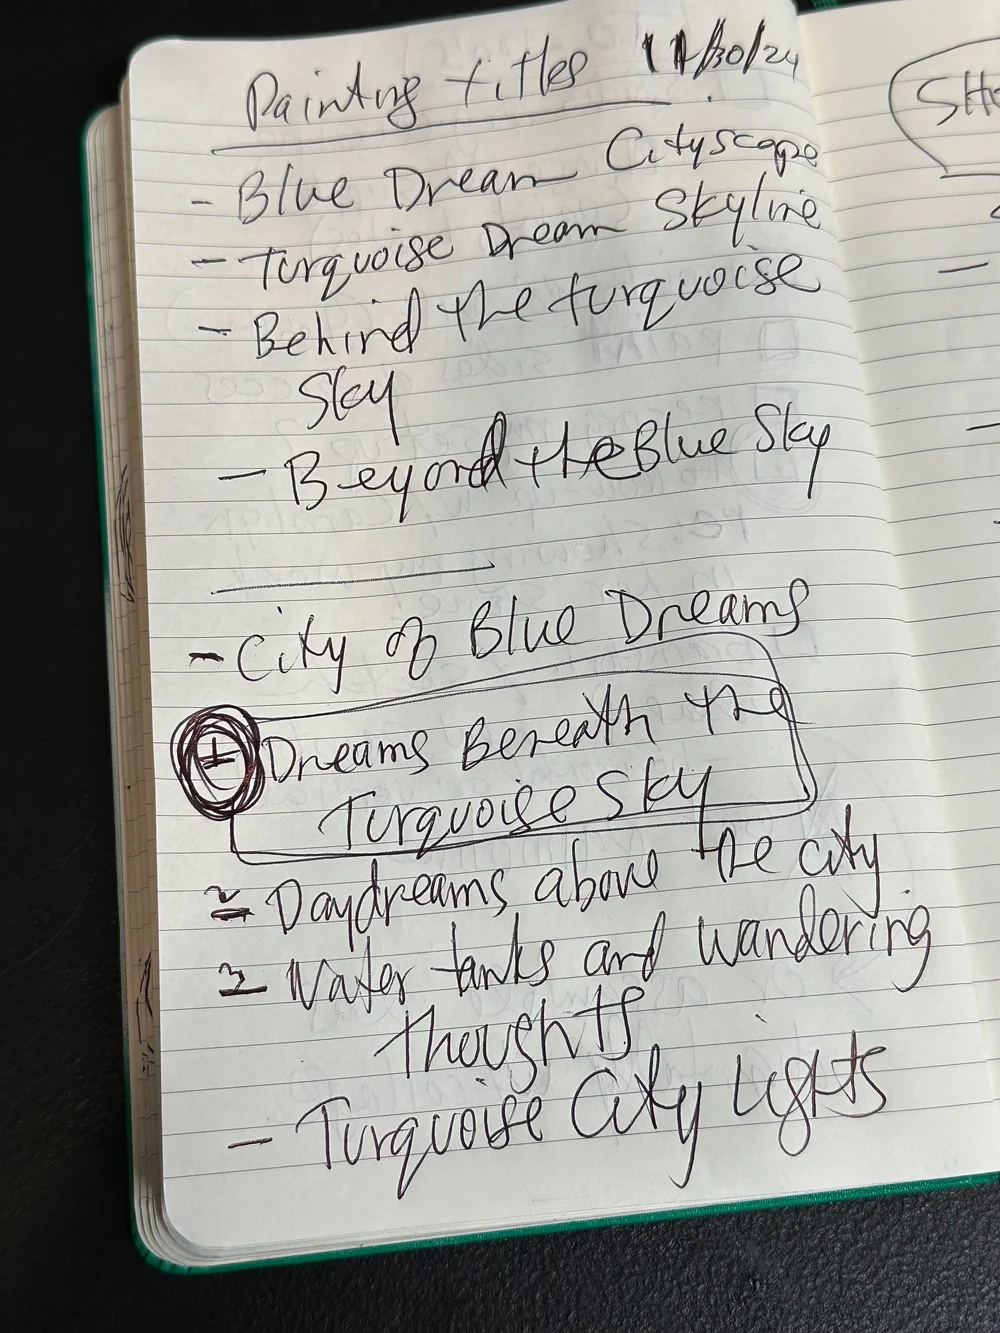 Painting titles 11/30/24
- Blue Dream Cityscape
- Turquoise Dream Skyline
- Behind the turquoise
Sky
- Beyond the Blue Sky
- City of Blue Dreams
1 Dreams Beneath the
Turquoise Sky
2 - Daydreams above the city
3 - Water tanks and wandering
thoughts
- Turquoise City Lights